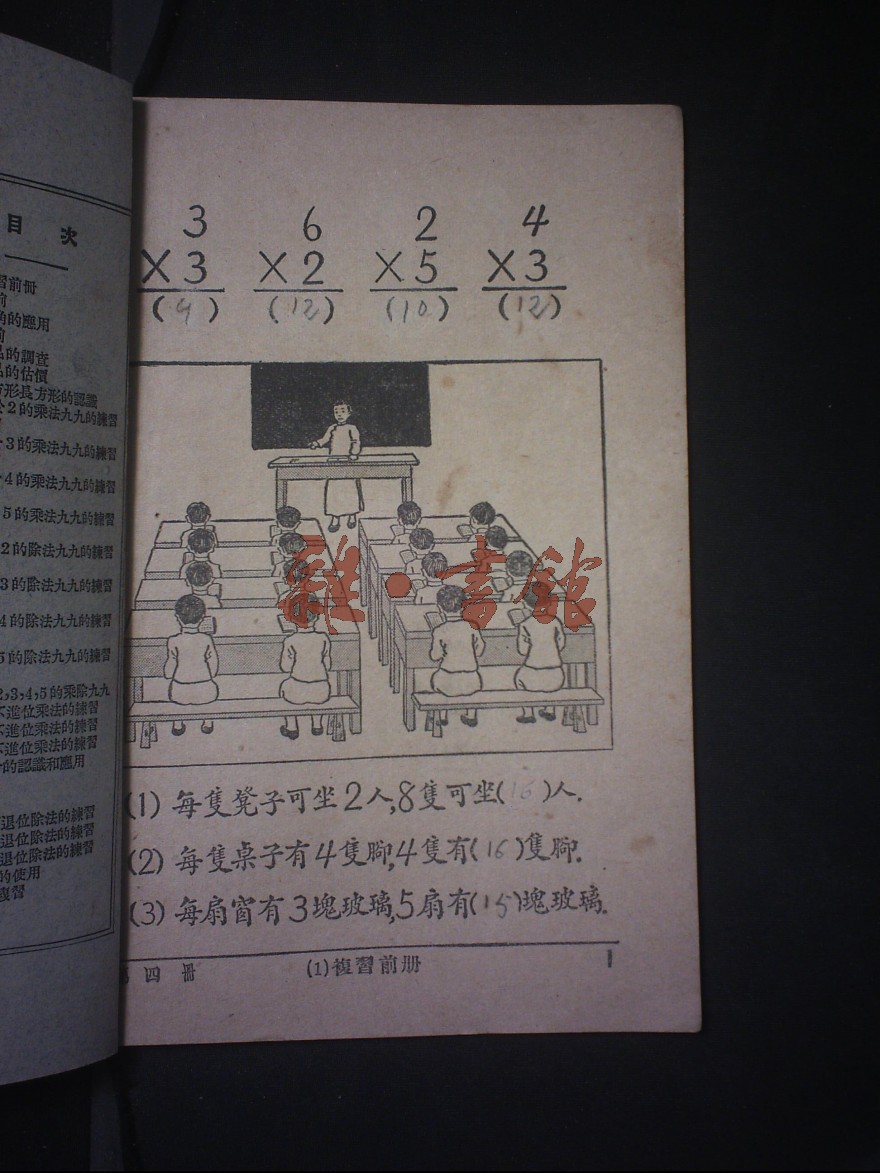 目 次
習前冊
前
角的應用
前
品的調查
品的估價
方形長方形的認識
2的乘法九九的練習
3的乘法九九的練習
4的乘法九九的練習
5的乘法九九的練習
2的除法九九的練習
3的除法九九的練習
4的除法九九的練習
5的除法九九的練習
2,3,4,5的乘除九九
不進位乘法的練習
不進位乘法的練習
不進位乘法的練習
的認識和應用
退位除法的練習
退位除法的練習
退位除法的練習
的使用
複習
3 6 2 4
×3 ×2 ×5 ×3
(9) (12) (10) (12)
雜·書館
(1) 每隻凳子可坐2人,8隻可坐(16)人.
(2) 每隻桌子有4隻腳,4隻有(16)隻腳.
(3) 每扇窗有3塊玻璃,5扇有(15)塊玻璃.
四冊 (1)複習前册 1